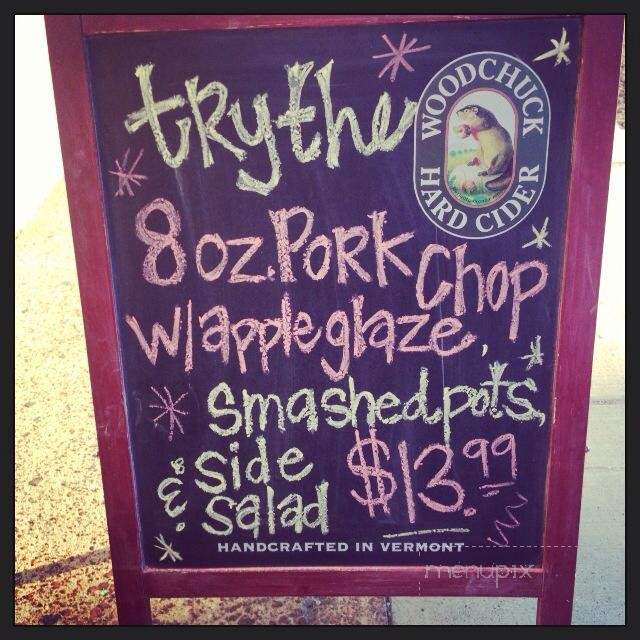 try the
WOODCHUCK
HARD CIDER
8 oz. Pork Chop
w/ apple glaze,
smashed pots,
& side
salad $13.99
HANDCRAFTED IN VERMONT
menupix